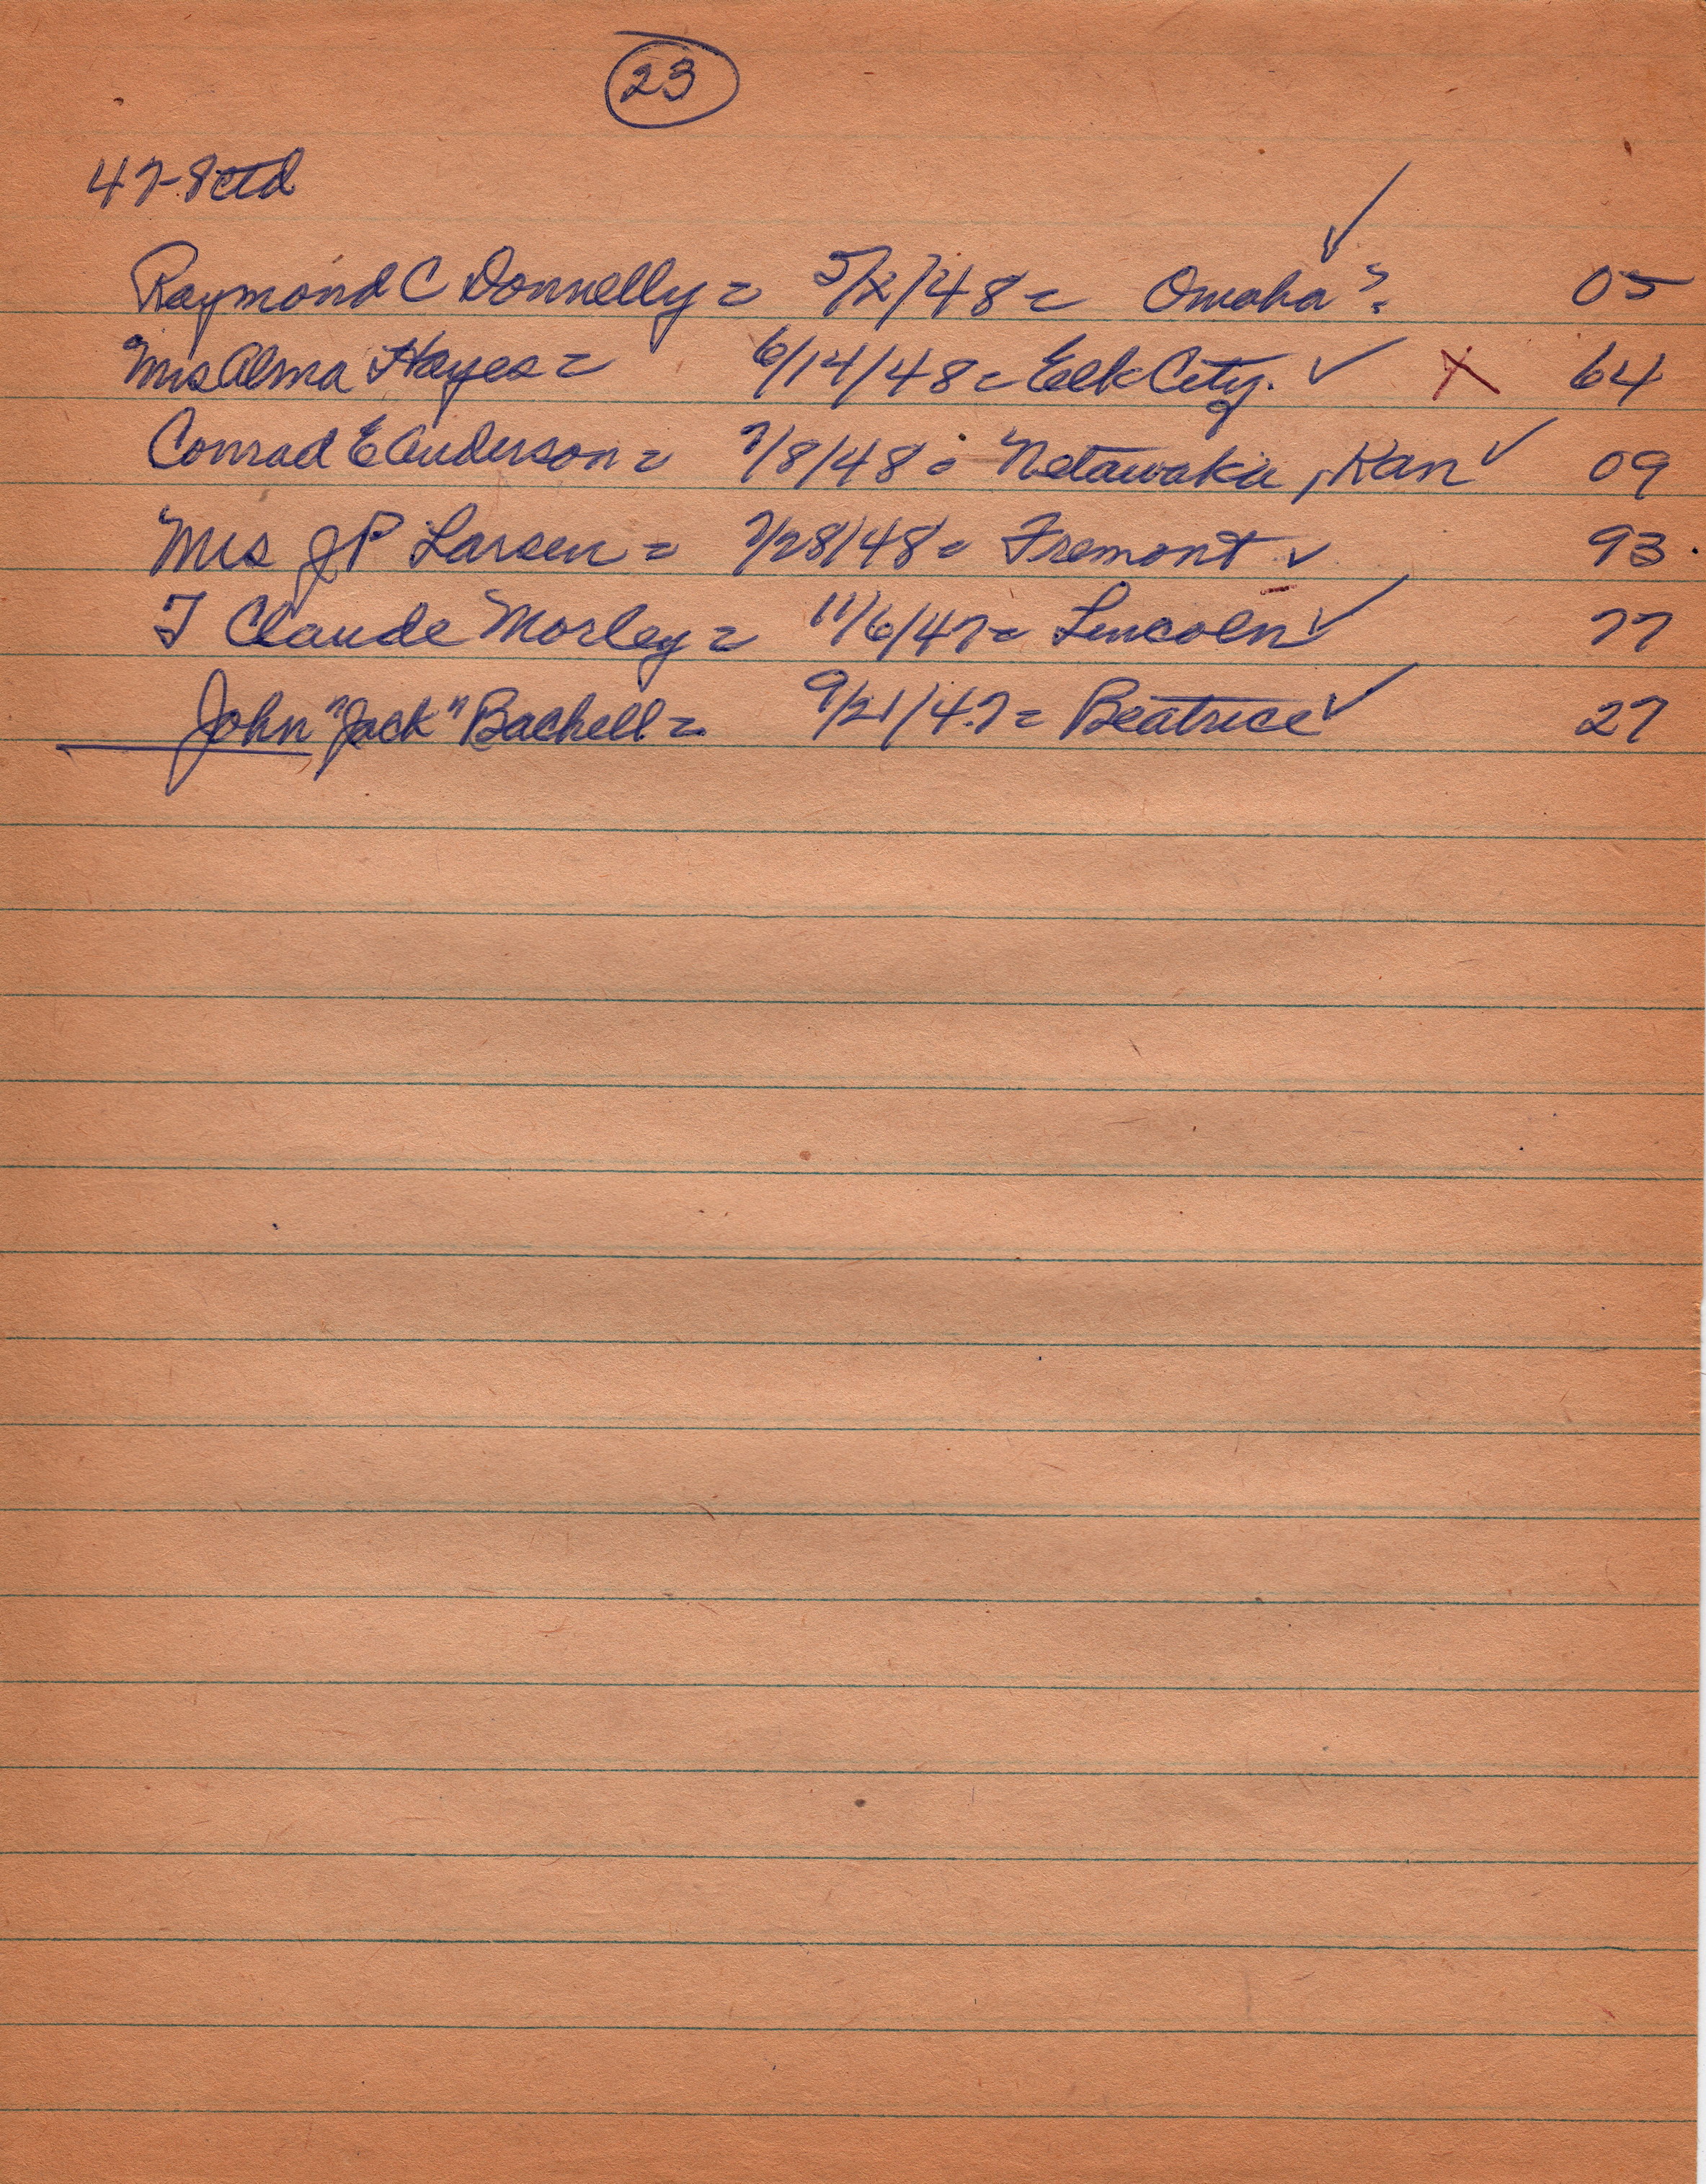 23
47-8 ctd
Raymond C Donnelly = 5/2/48 = Omaha ? ✓ 05
Mrs Alma Hayes = 6/14/48 = Elk City. ✓ X 64
Conrad E Anderson = 7/8/48 = Netawaka, Kan ✓ 09
Mrs JP Larsen = 7/28/48 = Fremont ✓ 93
T Claude Morley = 11/6/47 = Lincoln ✓ 77
John "Jack" Bachell = 9/21/47 = Beatrice ✓ 27